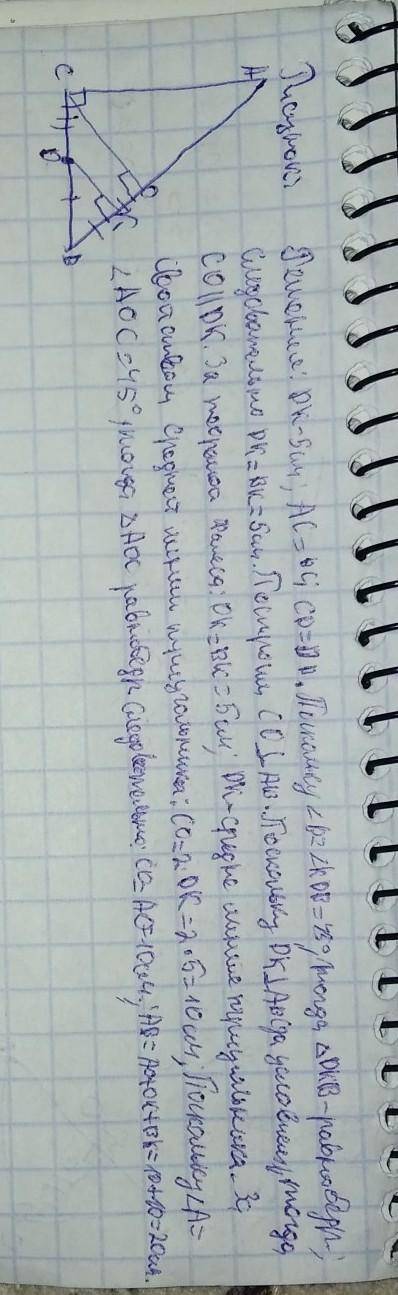 Рисунок:
A
C
D
B
O
K
Решение: DK-5см; AC=BC; CD=DB. Поскольку ∠B=∠KDB=45°, тогда △DKB-равнобедр.;
следовательно DK=BK=5см. Построим CO⊥AB. Поскольку DK⊥AB(за условием), тогда
CO||DK. За теоремой Фалеса: OK=BK=5см; DK-средня линия треугольника. За
свойством средней линии треугольника: CO=2·DK=2·5=10см; Поскольку ∠A=
∠AOC=45°, тогда △AOC равнобедр следовательно: CO=AO=10см; AB=AO+OK+BK=10+10=20см.